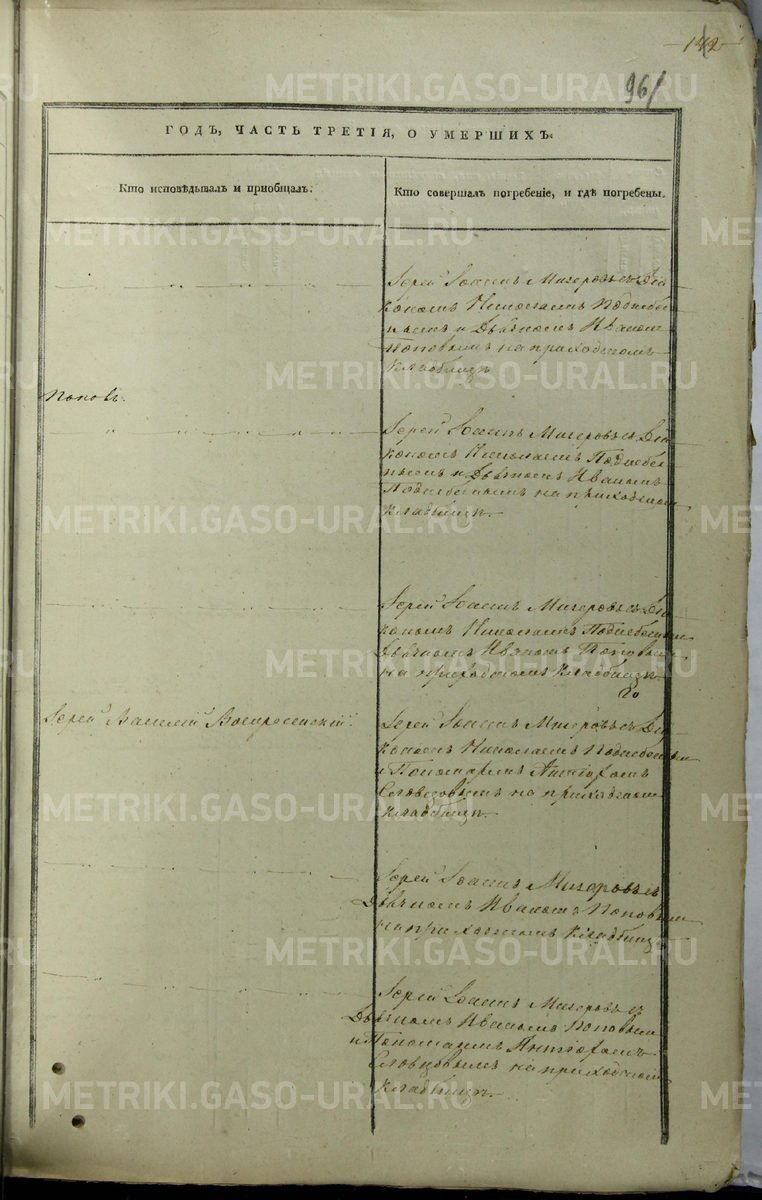 142
96/
ГОДЪ, ЧАСТЬ ТРЕТІЯ, О УМЕРШИХЪ.
Кто исповѣдывалъ и пріобщалъ.
Кто совершалъ погребеніе, и гдѣ погребены.
Іерей Іоаннъ Мигеровъ съ Діа
кономъ Николаемъ Поднебе
нымъ и Дьячкомъ Иваномъ
Поповымъ на приходскомъ
кладбищѣ
Поповъ.
Іерей Іоаннъ Мигеровъ съ Діа
кономъ Николаемъ Поднебес
нымъ и Дьячкомъ Иваномъ
на приходскомъ
кладбищѣ.
Іерей Іоаннъ Мигеровъ съ Діа
кономъ Николаемъ Поднебеснымъ
Дьячкомъ Иваномъ Поповымъ
на приходскомъ кладбищѣ
Іерей Василій Воскресенскій.
Іерей Іоаннъ Мигеровъ съ Діа
кономъ Николаемъ Поднебеснымъ
и Пономаремъ
Словцовымъ на приходскомъ
кладбищѣ.
Іерей Іоаннъ Мигеровъ съ
Дьячкомъ Иваномъ Поповымъ
на приходскомъ кладбищѣ
Іерей Іоаннъ Мигеровъ съ
Дьячкомъ Иваномъ Поповымъ
и
Словцовымъ на приходскомъ
кладбищѣ.
METRIKI.GASO-URAL.RU